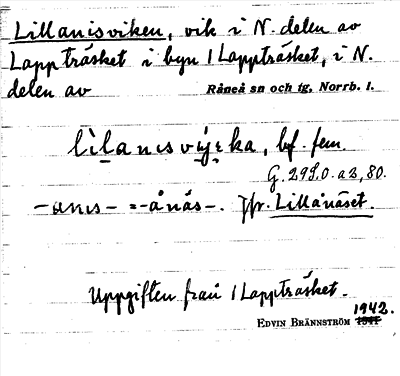 Lillanisviken, vik i N. delen av
Lappträsket i byn 1 Lappträsket, i N.
delen av Råneå sn och tg, Norrb. l.
lìlanısvýıka, bf. fem.
G. 2950. a2, 80.
-anıs- = -ånäs-. Jfr. Lillånäset.
Uppgiften från 1 Lappträsket.
1942.
EDVIN BRÄNNSTRÖM 1941